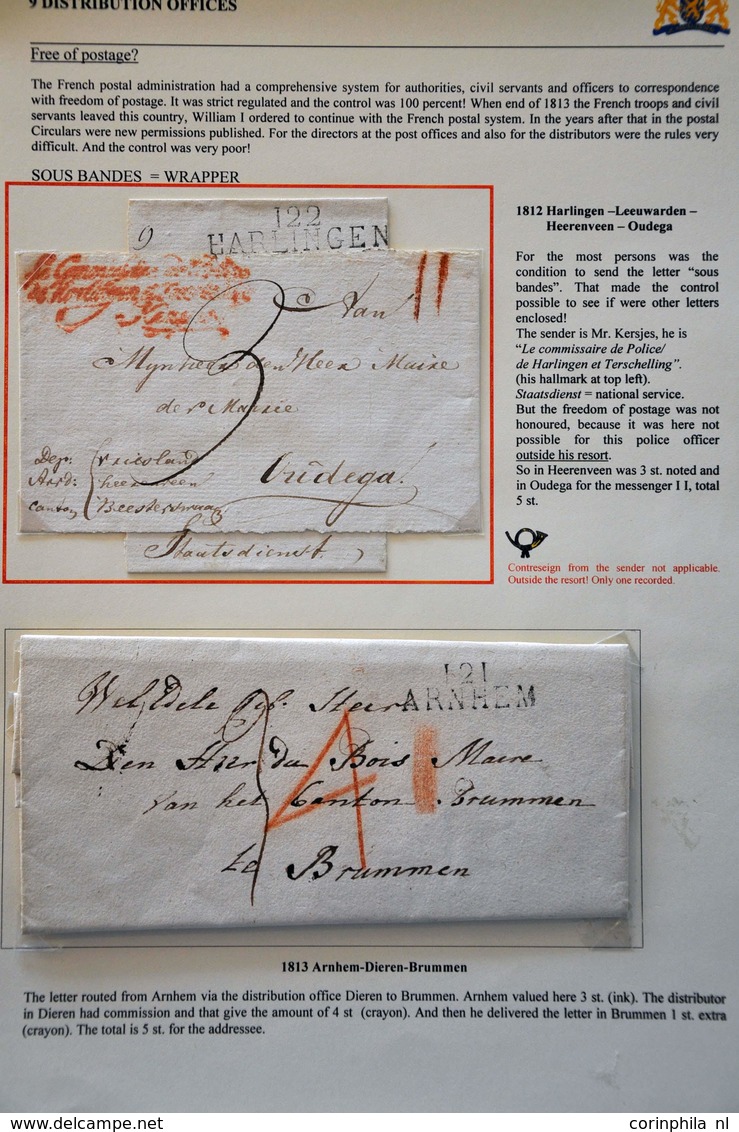 9 DISTRIBUTION OFFICES
Free of postage?
The French postal administration had a comprehensive system for authorities, civil servants and officers to correspondence
with freedom of postage. It was strict regulated and the control was 100 percent! When end of 1813 the French troops and civil
servants leaved this country, William I ordered to continue with the French postal system. In the years after that in the postal
Circulars were new permissions published. For the directors at the post offices and also for the distributors were the rules very
difficult. And the control was very poor!
SOUS BANDES = WRAPPER
122
HARLINGEN
9
II
3
Van
Mynheer den Heer Maire
der Mairie
Oudega.
Dep: Vriesland
Arrd: heerenveen
Canton Beetsterswaag
Staatsdienst
1812 Harlingen –Leeuwarden –
Heerenveen – Oudega
For the most persons was the
condition to send the letter “sous
bandes”. That made the control
possible to see if were other letters
enclosed!
The sender is Mr. Kersjes, he is
“Le commissaire de Police/
de Harlingen et Terschelling”.
(his hallmark at top left).
Staatsdienst = national service.
But the freedom of postage was not
honoured, because it was here not
possible for this police officer
outside his resort.
So in Heerenveen was 3 st. noted and
in Oudega for the messenger I I, total
5 st.
Contreseign from the sender not applicable.
Outside the resort! Only one recorded.
121
ARNHEM
WelEdele Heer
Den Heer du Bois Maire
van het Canton Brummen
te Brummen
4
1813 Arnhem-Dieren-Brummen
The letter routed from Arnhem via the distribution office Dieren to Brummen. Arnhem valued here 3 st. (ink). The distributor
in Dieren had commission and that give the amount of 4 st (crayon). And then he delivered the letter in Brummen 1 st. extra
(crayon). The total is 5 st. for the addressee.
corinphila nl